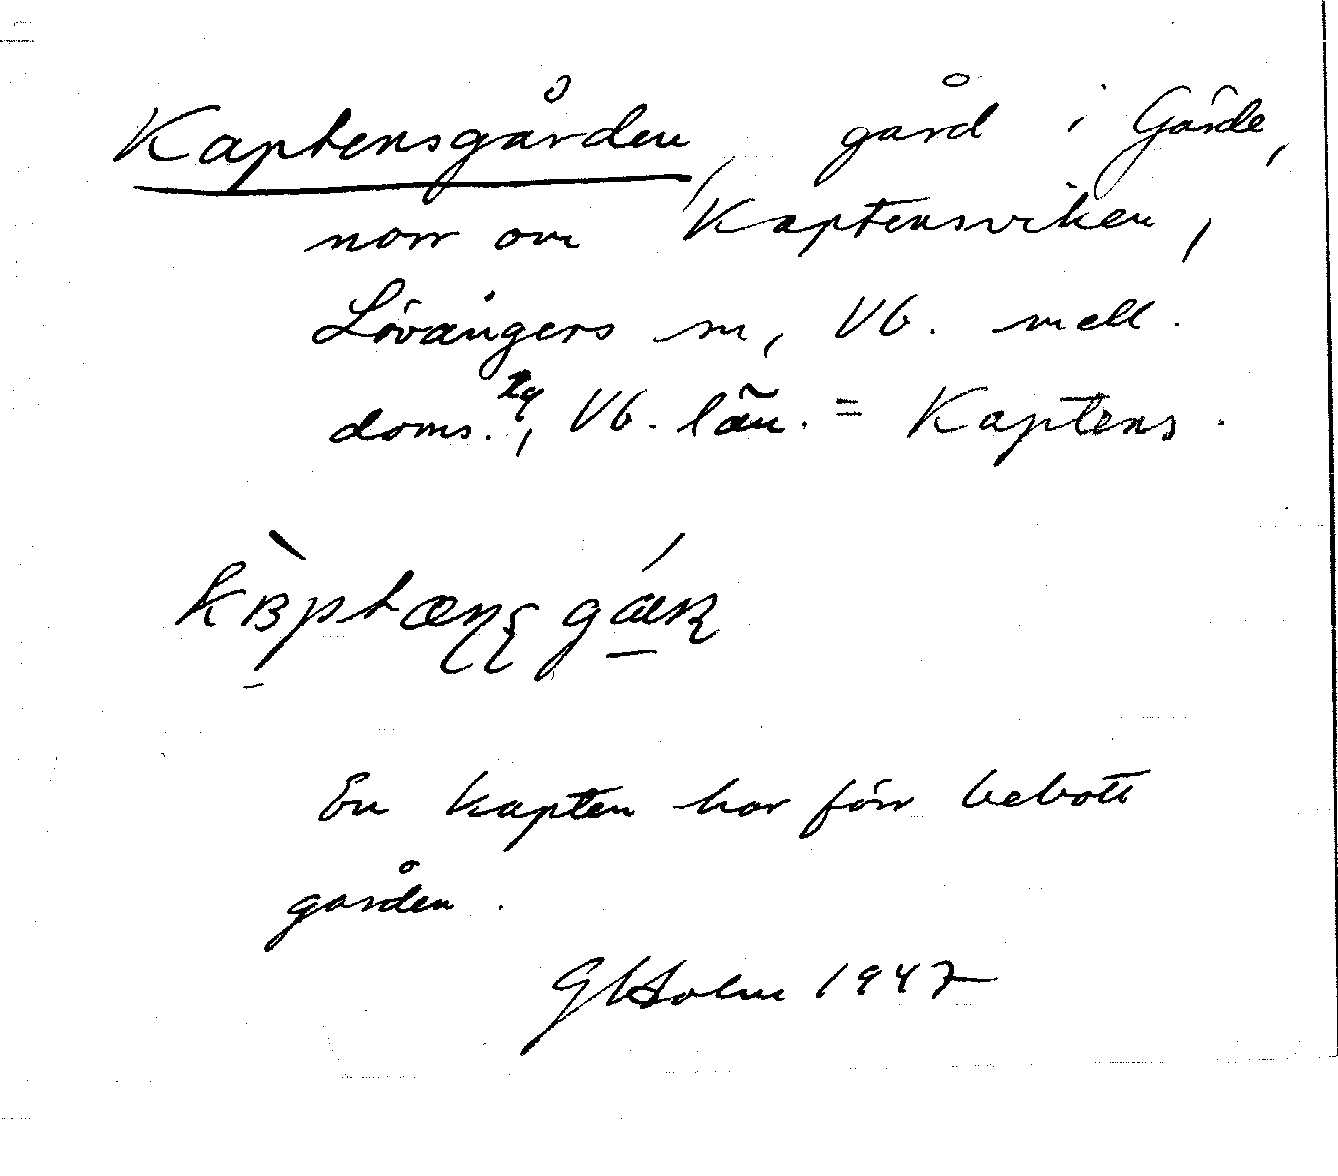 Kaptensgården, gård i Gärde,
norr om Kaptensviken,
Lövångers sn, Vb. mell.
doms. tg, Vb. län. = Kaptens.
En kapten har förr bebott
gården.
G Holm 1947